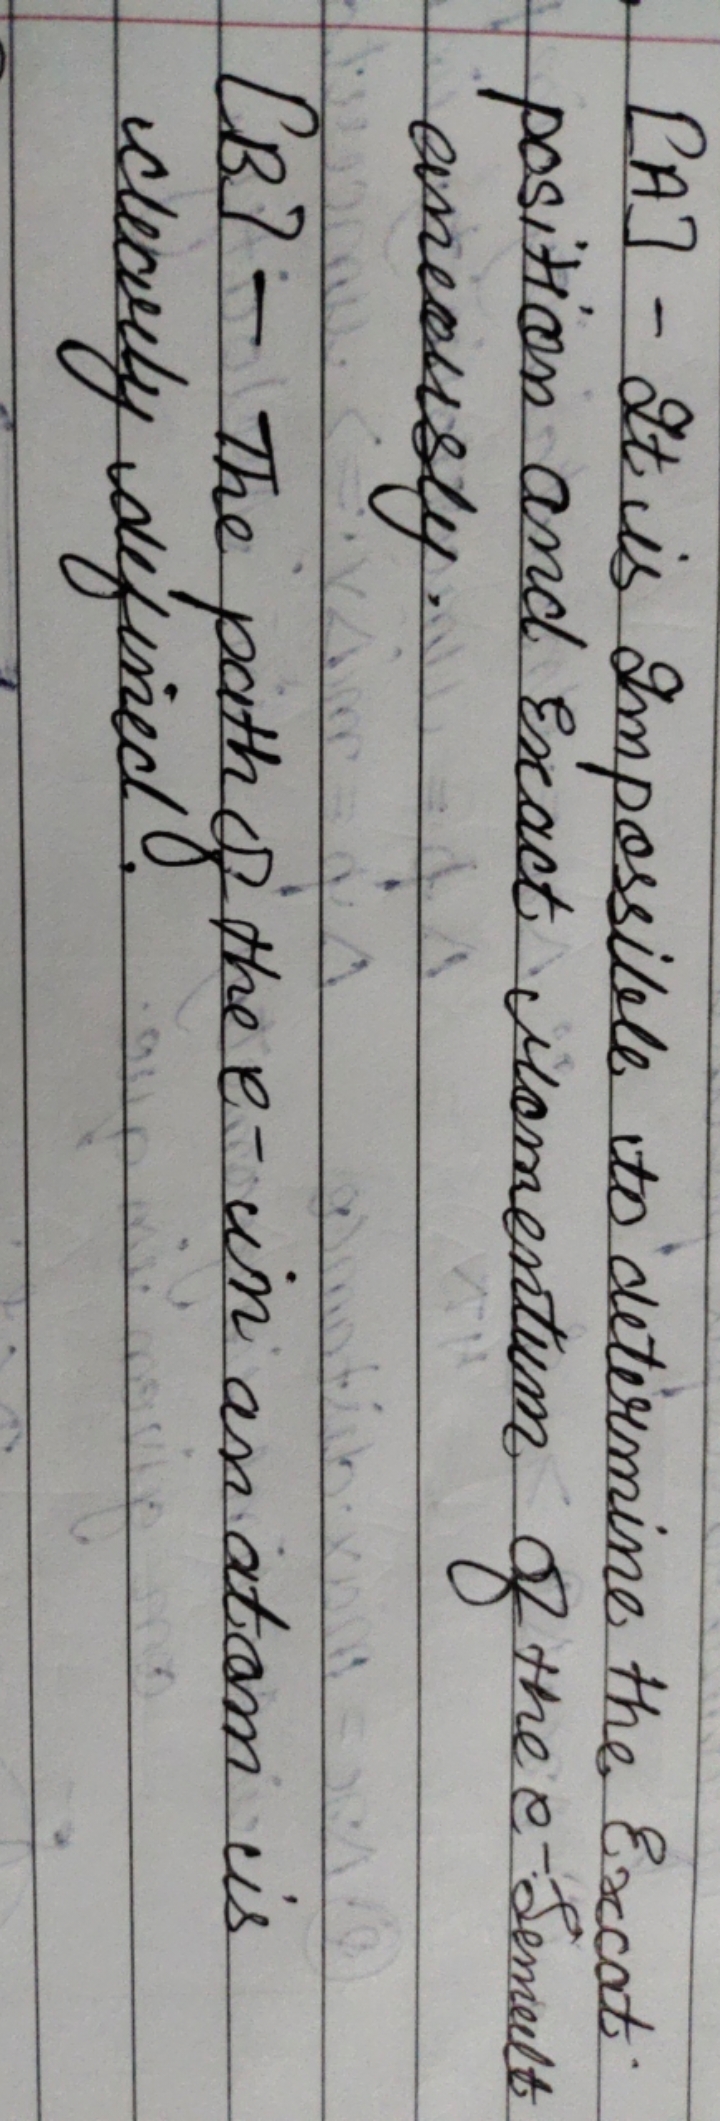 [A] - It is Impossible to determine the Excat
position and Exact Momentum of the e- Semult
aneously.
[B] - The path of the e- in an atom is
clearly defined.